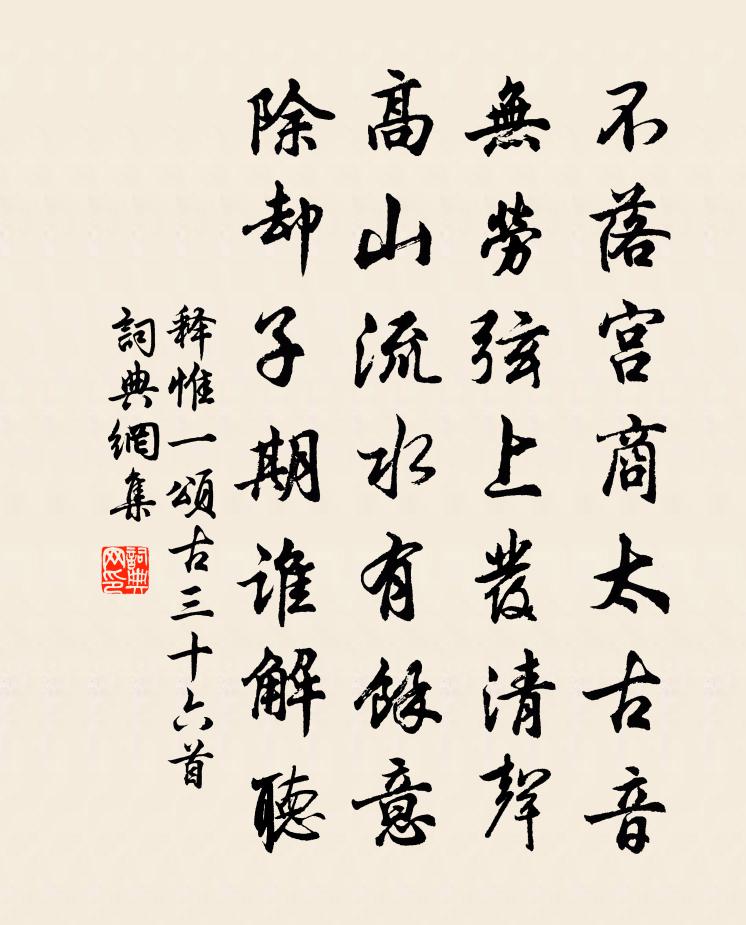 不落宫商太古音
無勞弦上發清聲
高山流水有餘意
除却子期誰解聽
释惟一頌古三十六首
詞典網集
詞典網印